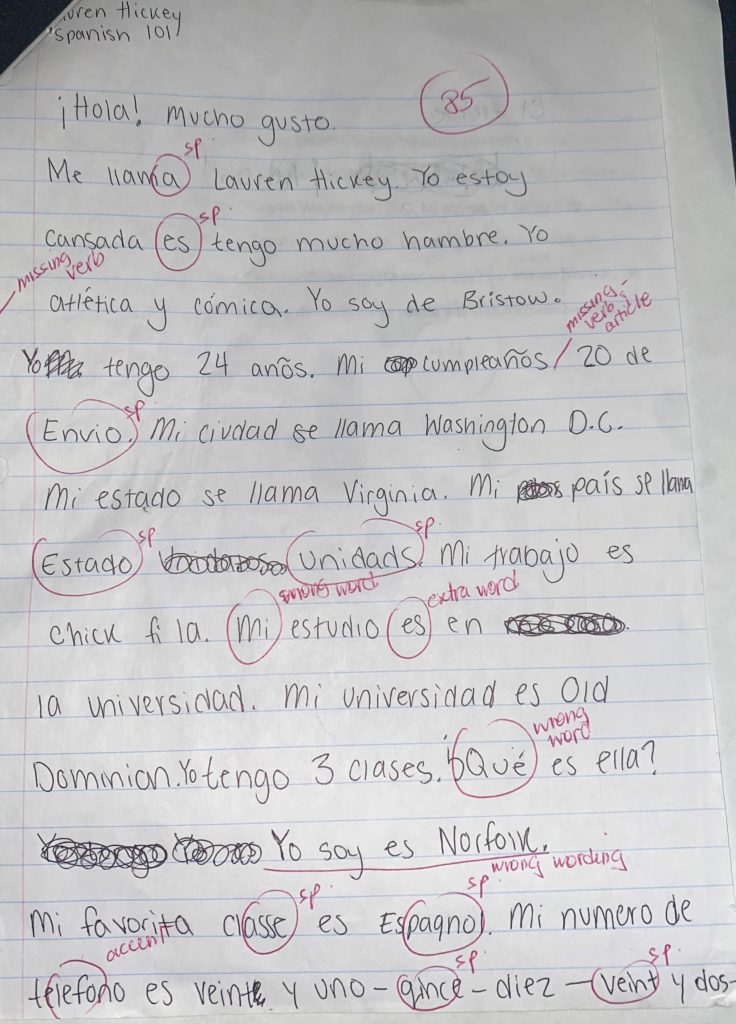 Lauren Hickey
Spanish 101
85
¡Hola! Mucho gusto.
sp.
Me llama Lauren Hickey. Yo estoy
sp.
cansada es tengo mucho hambre. Yo
missing verb
atlética y cómica. Yo soy de Bristow.
missing verb & article
Yo tengo 24 años. Mi cumpleaños / 20 de
sp
Envio. Mi ciudad se llama Washington D.C.
Mi estado se llama Virginia. Mi país se llama
sp sp.
Estado Unidads. Mi trabajo es
wrong word extra word
chick fi la. Mi estudio es en
la universidad. Mi universidad es Old
wrong word
Dominion. Yo tengo 3 clases. ¿Qué es ella?
Yo soy es Norfolk.
wrong wording
sp. sp
Mi favorita classe es Espagnol. Mi numero de
accent sp. sp.
telefono es veinte y uno - qince - diez - veint y dos -